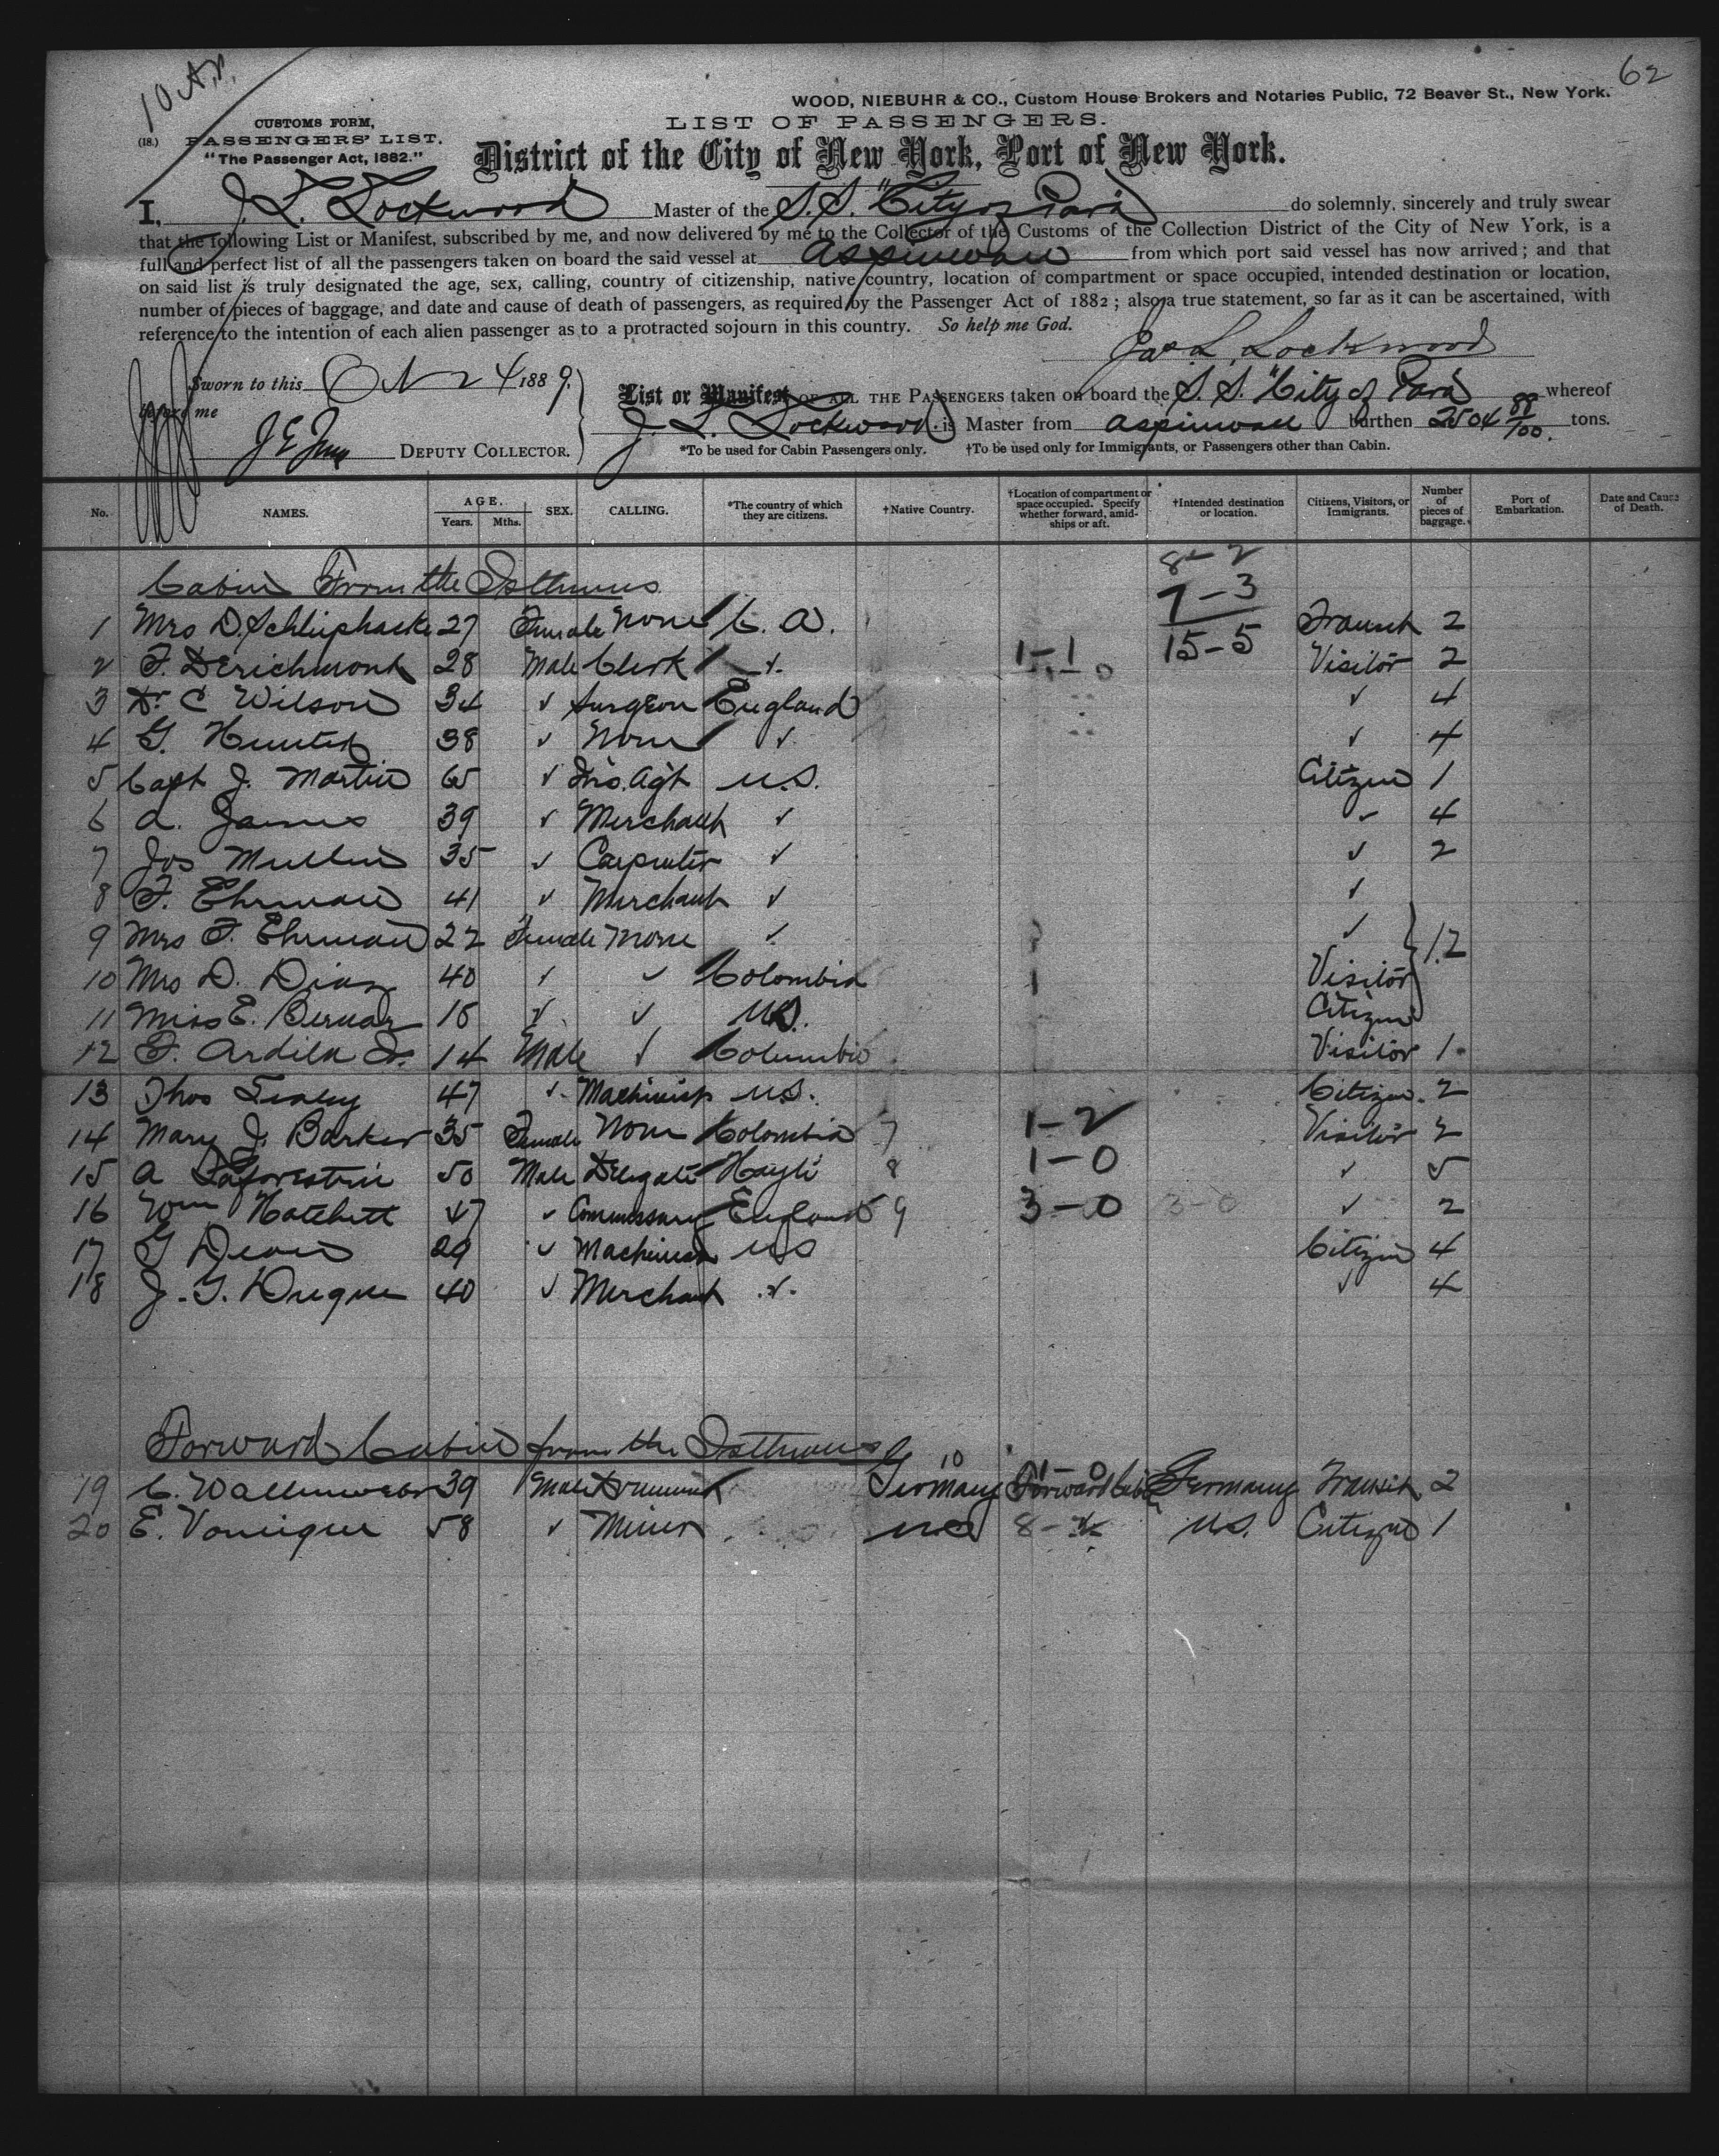 10 A.M.
62
WOOD, NIEBUHR & CO., Custom House Brokers and Notaries Public, 72 Beaver St., New York.
CUSTOMS FORM,
LIST OF PASSENGERS.
(18.) PASSENGERS' LIST.
"The Passenger Act, 1882."
District of the City of New York, Port of New York.
I, J. L. Lockwood Master of the S.S. "City of Para" do solemnly, sincerely and truly swear
that the following List or Manifest, subscribed by me, and now delivered by me to the Collector of the Customs of the Collection District of the City of New York, is a
full and perfect list of all the passengers taken on board the said vessel at Aspinwall from which port said vessel has now arrived; and that
on said list is truly designated the age, sex, calling, country of citizenship, native country, location of compartment or space occupied, intended destination or location,
number of pieces of baggage, and date and cause of death of passengers, as required by the Passenger Act of 1882; also a true statement, so far as it can be ascertained, with
reference to the intention of each alien passenger as to a protracted sojourn in this country. So help me God.
Jas L. Lockwood
Sworn to this 24 1889.
before me
DEPUTY COLLECTOR.
List or Manifest OF ALL THE PASSENGERS taken on board the S.S. "City of Para" whereof
J. L. Lockwood is Master from Aspinwall burthen 2504 88/100 tons.
*To be used for Cabin Passengers only. †To be used only for Immigrants, or Passengers other than Cabin.
No. NAMES. AGE. Years. Mths. SEX. CALLING. *The country of which they are citizens. †Native Country. †Location of compartment or space occupied. Specify whether forward, amidships or aft. †Intended destination or location. Citizens, Visitors, or Immigrants. Number of pieces of baggage. Port of Embarkation. Date and Cause of Death.
8-2
Cabin From the Isthmus
7-3
15-5
1 Mrs D. Schliphacke 27 Female None C. A. Transit 2
2 F. DErichmont 28 Male Clerk ✓ 1-1 Visitor 2
3 Dr C Wilson 34 ✓ Surgeon England ✓ 4
4 G. Hunter 38 ✓ None ✓ ✓ 4
5 Capt J. Martin 65 ✓ Ins. Agt U.S. Citizen 1
6 A. James 39 ✓ Merchant ✓ ✓ 4
7 Jos Mullin 35 ✓ Carpenter ✓ ✓ 2
8 F. Ehrman 41 ✓ Merchant ✓ ✓
9 Mrs F. Ehrman 22 Female None ✓ ✓ 12
10 Mrs D. Diaz 40 ✓ ✓ Colombia Visitor
11 Miss E. Bernar 18 ✓ ✓ U.S. Citizen
12 F. Ardila Jr. 14 Male ✓ Columbia Visitor 1
13 Thos 47 ✓ Machinist U.S. Citizen 2
14 Mary J. Barker 35 Female None Colombia 7 1-2 Visitor 2
15 A Laforestrie 50 Male Delegate Hayti 8 1-0 ✓ 5
16 Wm Hatchett 47 ✓ Commissary England 9 3-0 3-0 ✓ 2
17 G Dean 29 ✓ Machinist US Citizen 4
18 J. G. Duque 40 ✓ Merchant ✓ ✓ 4
Forward Cabin from the Isthmus
10 1-0
19 C. Wallenweber 39 Male Germany Forward Cabin Germany Transit 2
20 E. Vonique 58 ✓ Miner US 8- U.S. Citizen 1